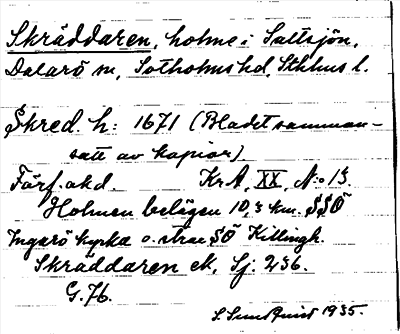 Skräddaren, holme i Saltsjön,
Dalarö sn, Sotholms hd, Sthlms l.
Skred. h: 1671 (Bladet samman-
satt av kopior)
Förf. okd. KrA, XX, N:o 13.
Holmen belägen 10,3 km. SSÖ
Ingarö kyrka o. strax SÖ Killingh.
Skräddaren ek, Sj. 236.
G. 76.
S. Sundquist 1935.